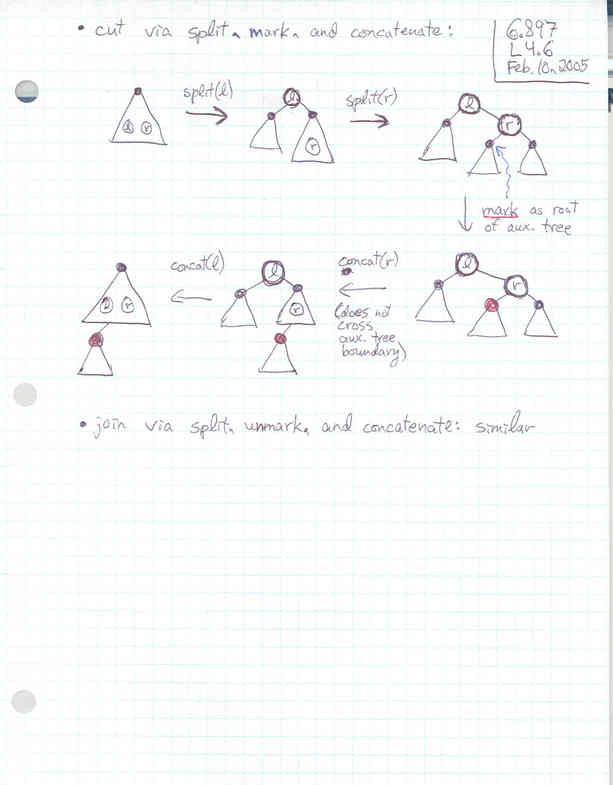 • cut via split, mark, and concatenate:
6.897
L4.6
Feb. 10, 2005
split(l)
split(r)
l r
l
r
l
r
mark as root
of aux. tree
concat(l)
concat(r)
(does not
cross
aux. tree
boundary)
l r
l
r
l
r
• join via split, unmark, and concatenate: similar